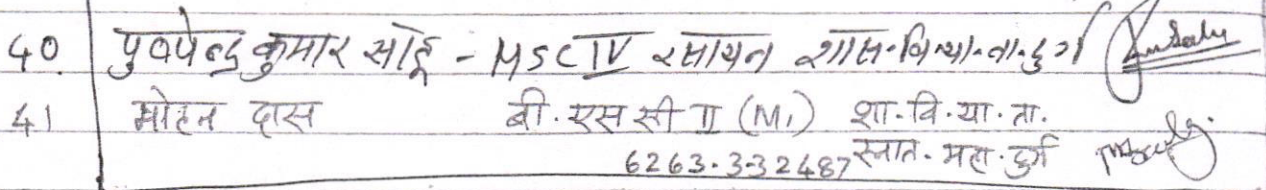 40. पुष्पेन्द्र कुमार साहू - MSC IV रसायन शास. वि. या. ता. दुर्ग
41 मोहन दास बी. एस सी II (M.) शा. वि. या. ता.
6263.3-32487 स्नात. महा. दुर्ग